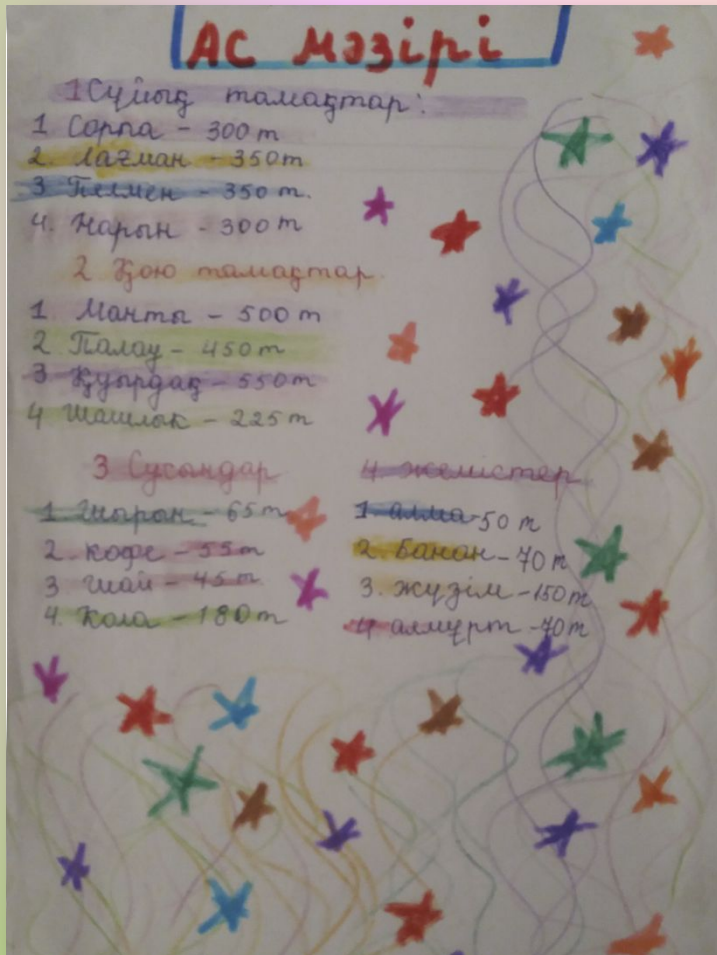 Ас мәзірі
1 Сұйық тамақтар:
1. Сорпа - 300 т
2. Лағман - 350 т
3 Пелмен - 350 т.
4. Нарын - 300 т
2 Қою тамақтар.
1. Манты - 500 т
2 Палау - 450 т
3 Қуырдақ - 550 т
4 Шашлык - 225 т
3 Сусындар
1 Шырын - 65 т
2. кофе - 55 т
3 шай - 45 т.
4. Кола - 180 т
4. жемістер
1 алма - 50 т
2. Банан - 70 т
3. жүзім - 150 т
4 алмұрт - 70 т